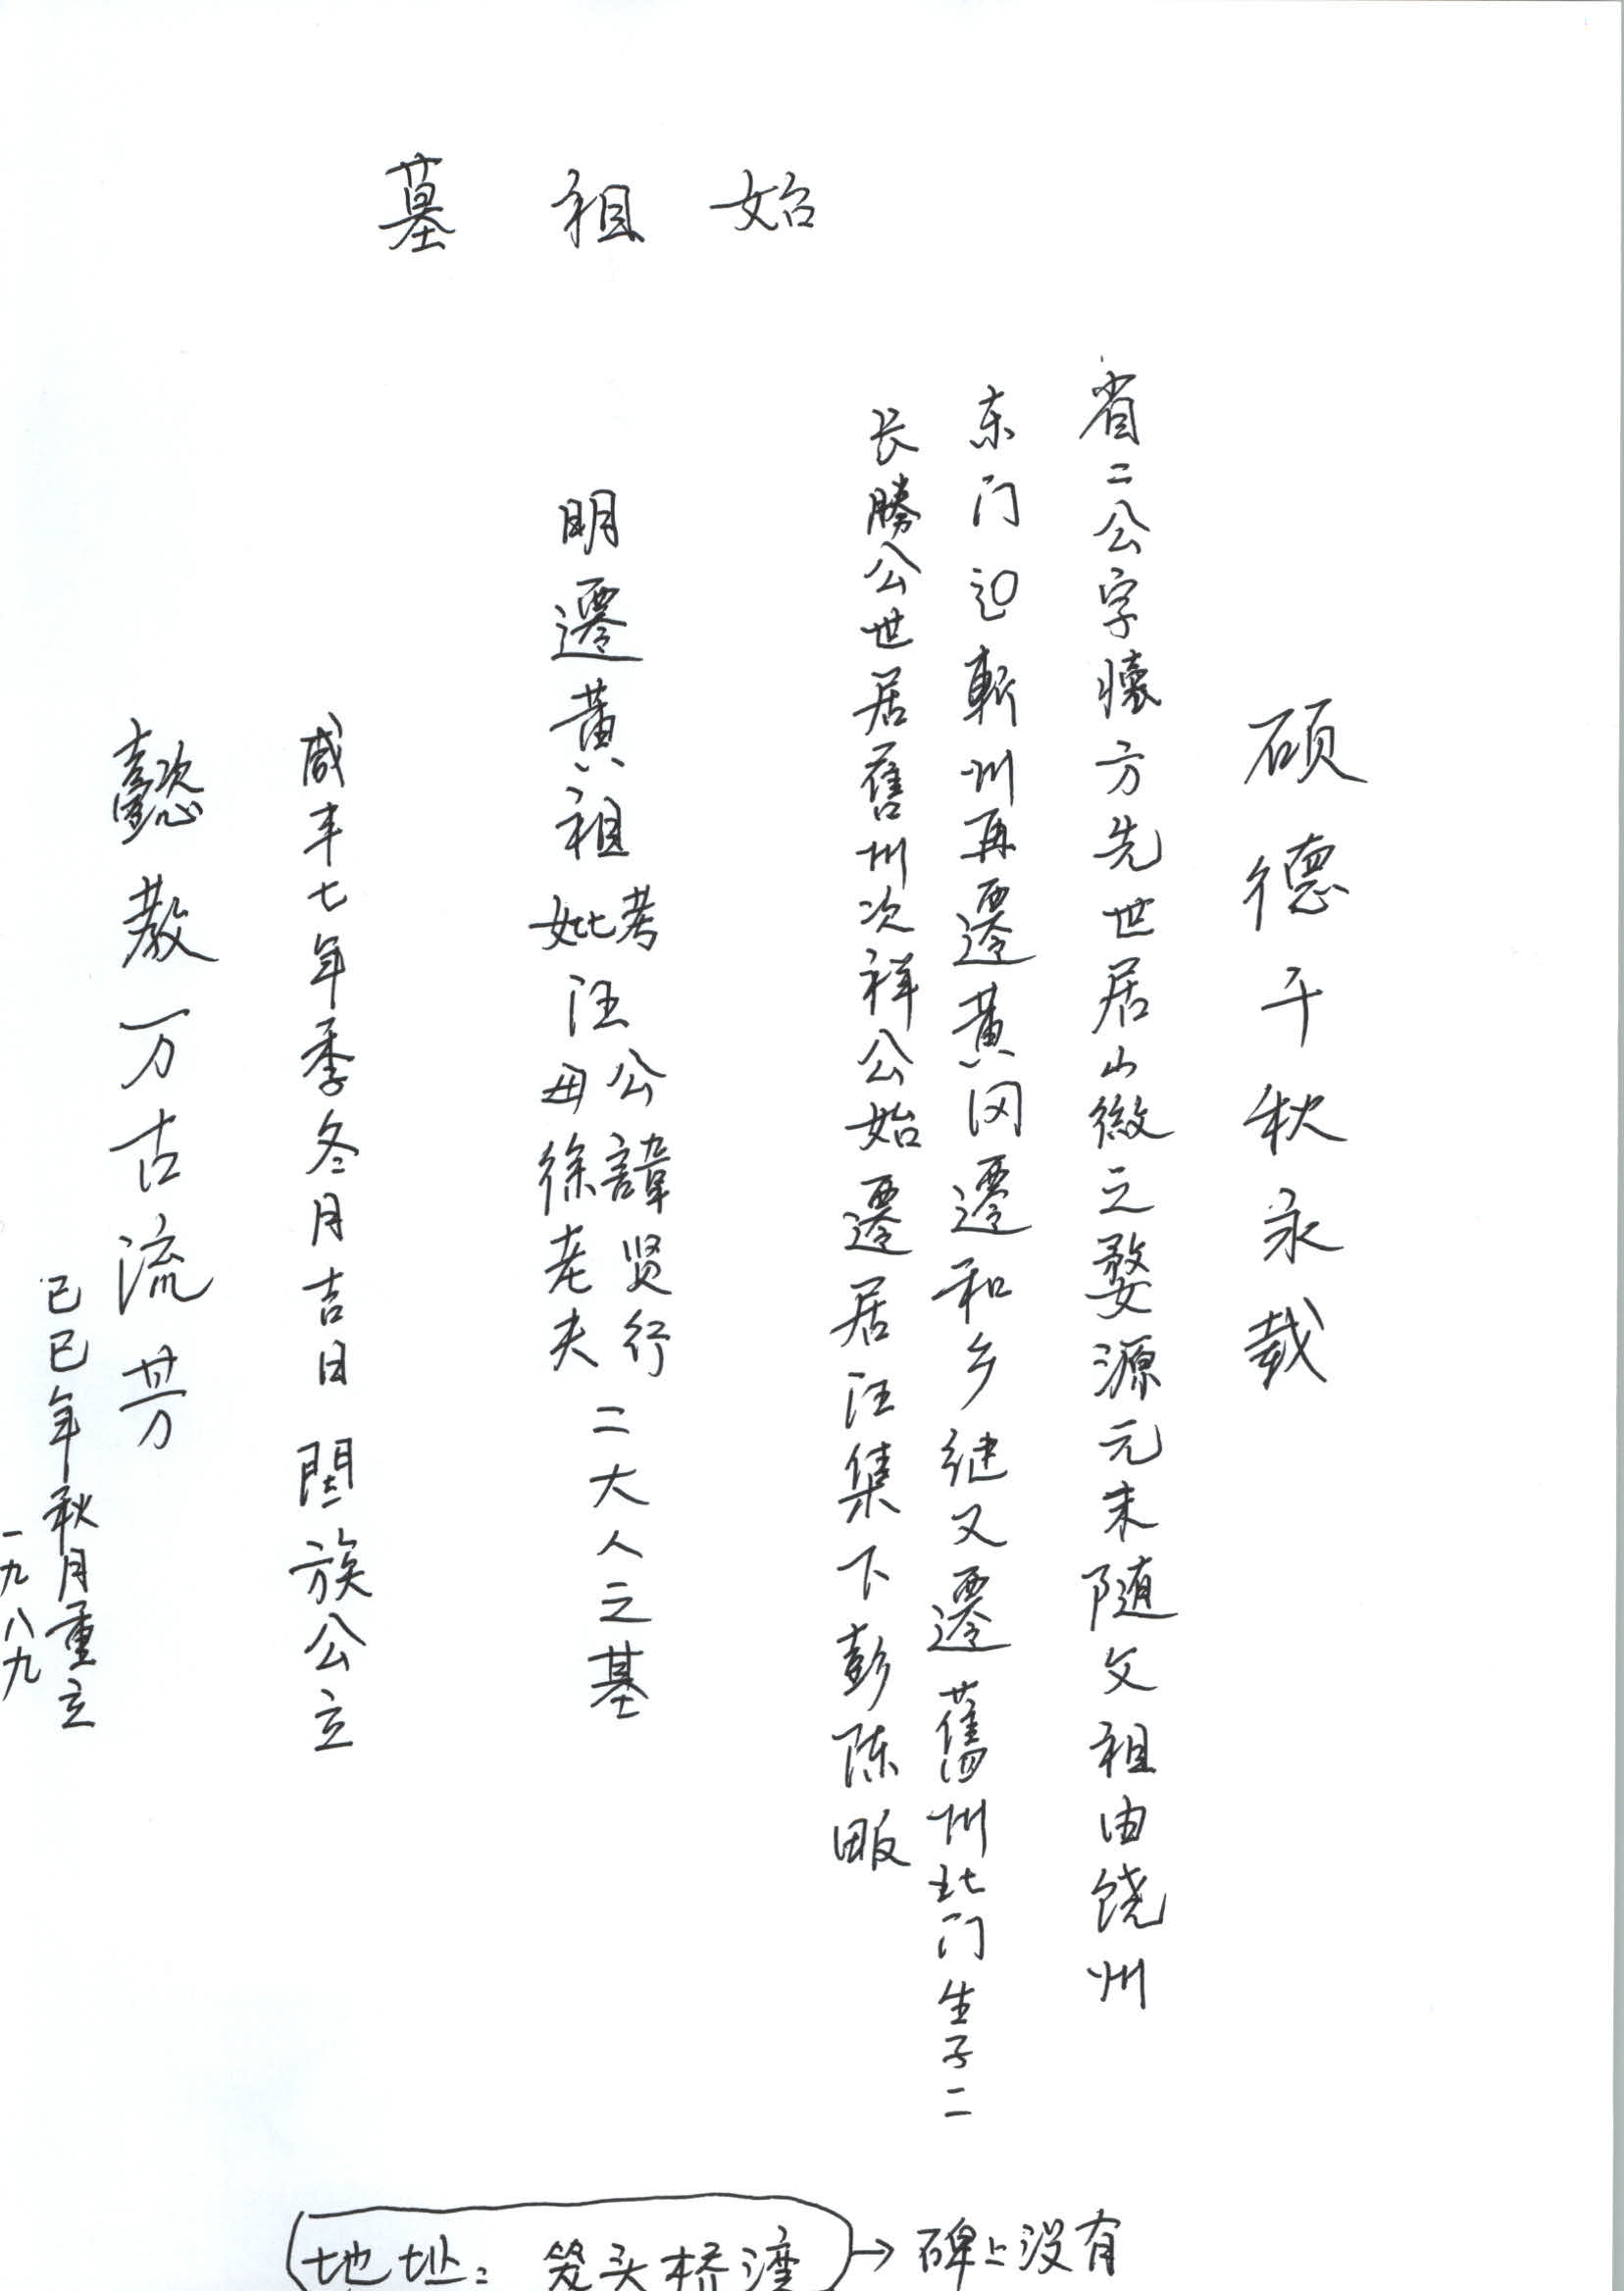 始祖墓
硕德千秋永载
省二公字懐方先世居山徽之婺源元末随父祖由饶州
东门迟蕲州再遷黄冈遷和乡继又遷舊州北门生子二
长勝公世居舊州次祥公始遷居汪集下彭陈畈
明遷黄祖考妣汪公諱贤行母徐老夫二大人之墓
咸丰七年季冬月吉日 閤族公立
懿教万古流芳
己巳年秋月重立
一九八九
地址：笼头桥湾 → 碑上没有